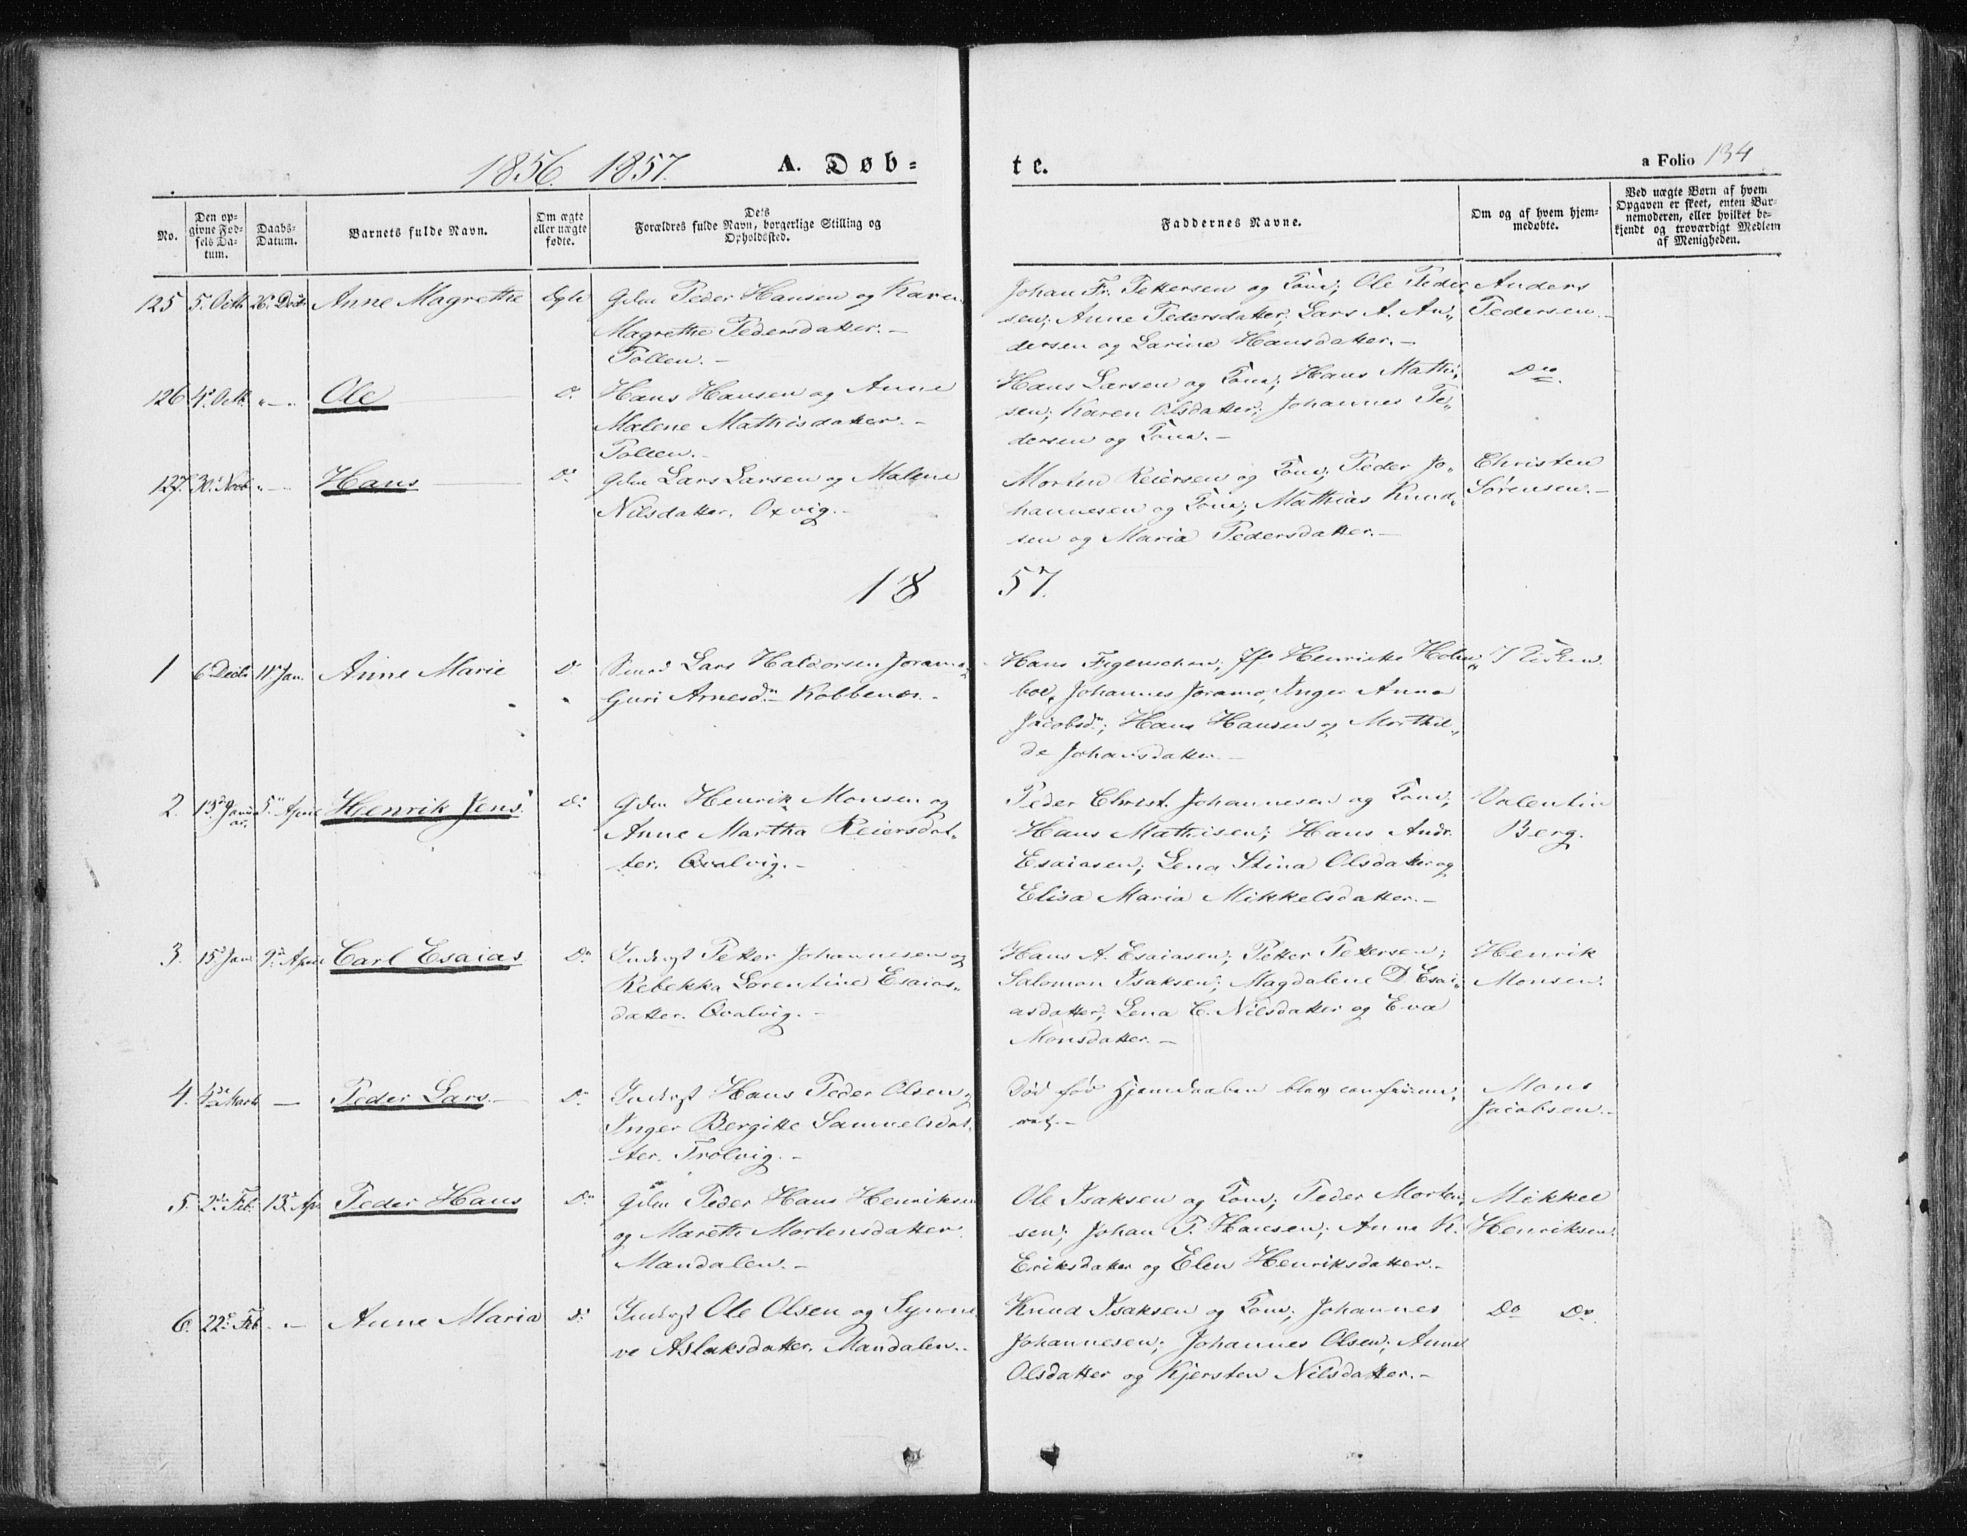 1856. 1857. A. Døb=
te.
a Folio 134
No.
Den op=
givne Fød=
sels Da=
tum.
Daabs=
Datum.
Barnets fulde Navn.
Om ægte
eller uægte
fødte.
De's
Forældres fulde Navn, borgerlige Stilling og
Opholdssted.
Faddernes Navne.
Om og af hvem hjem=
medøbte.
Ved uægte Børn af hvem
Opgaven er skeet, enten Bar=
nemoderen, eller hvilket be=
kjendt og troværdigt Medlem
af Menigheden.
125 5. Octb 26. Decb Anne Magrethe Ægte Gdm Peder Hansen og Karen
Magrethe Pedersdatter.-
Pollen.-
Johan Fr. Pettersen og Kone; Ole Peder
sen; Anne Pedersdatter; Lars A. An„
dersen og Larine Hansdatter.-
Anders
Pedersen.-
126 4. Octb. „-„ Ole D. Hans Hansen og Anne
Malene Mathisdatter.-
Pollen.-
Hans Larsen og Kone; Hans Mathi„
sen; Karen Olsdatter; Johannes Pe„
dersen og Kone.-
Do
127. 30. Novb „-„ Hans Do Gdm Lars Larsen og Malene
Nilsdatter. Oxvig.-
Morten Reiersen og Kone; Peder Jo„
hannesen og Kone; Mathias Knud„
sen og Maria Pedersdatter.-
Christen
Sørensen.-
18 57.
1 6 Decb 11. Jan. Anne Marie D. Lars Haldorsen Joramo
Guri Arnesdr Kobbenes.-
Hans Figenschou; Henrikke Holm„
boe, Johannes Joramo, Inger Anna
Jacobsdr; Hans Hansen og Morthil„
de Johansdatter.-
I Kirken.
2. 13. Janu
ar. 5. April Henrik Jens. Do Gdm Henrik Monsen og
Anne Martha Reiersdat„
ter. Qvalvig.-
Peder Christ. Johannesen og Kone;
Hans Mathisen; Hans Andr.
Esaiasen; Lena Stina Olsdatter og
Elisa Maria Mikkelsdatter.-
Valentin
Berg.
3. 15. Jan 9. April Carl Esaias Do Inderst Petter Johannesen og
Rebekka Lorentine Esaias„
datter. Qvalvig.-
Hans A. Esaiasen; Petter Pettersen;
Salomon Isaksen; Magdalene D. Esai„
asdatter; Lena C. Nilsdatter og Eva
Monsdatter.-
Henrik
Monsen.
4. 4. Marts - Peder Lars.- Do Inderst Hans Peder Olsen og
Inger Bergitte Samuelsdat„
ter. Trolvig.-
Død før Hjemdaaben blev confirme„
ret.-
Mons
Jacobsen.-
5. 2. Feb. 13. Ap. Peder Hans Do Gdm Peder Hans Henriksen
og Mareth Mortensdatter.
Mandalen.-
Ole Isaksen og Kone; Peder Morten„
sen; Johan P. Hansen; Anne K.
Eriksdatter og Elen Henriksdatter.-
Mikkel
Henriksen.
6. 22. Feb „-„ Anne Maria D. Inderst Ole Olsen og Synne
ve Aslaksdatter. Mandalen.-
Knud Isaksen og Kone; Johannes
Johannesen; Johannes Olsen; Anne
Olsdatter og Kjersten Nilsdatter.-
Do Do.